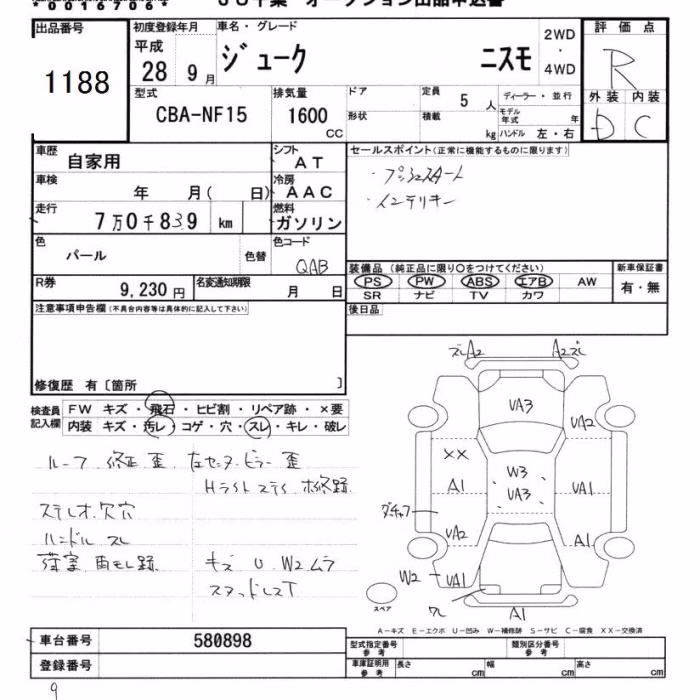 *00167064*
JU千葉 オークション出品申込書
出品番号 初度登録年月 車名・グレード 2WD ・ 4WD 評価点
1188 平成 28 9月 ジューク ニスモ R
型式 排気量 ドア 定員 5人 ディーラー・並行 外装 内装
CBA-NF15 1600 CC 形状 積載 kg モデル年式 年 ハンドル 左・右 D C
車歴 自家用 シフト AT セールスポイント(正常に機能するものに限ります)
車検 年 月( 日) 冷房 AAC ・プッシュスタート
走行 7万0千839 km 燃料 ガソリン ・インテリキー
色 パール 色替 色コード QAB
装備品(純正品に限り〇をつけてください) 新車保証書
R券 9,230円 名変通知期限 月 日 PS PW ABS エアB AW 有・無
SR ナビ TV カワ
注意事項申告欄(不具合内容等は具体的に記入して下さい) 後日品
修復歴 有〔箇所 〕
検査員記入欄 FW キズ・飛石・ヒビ割・リペア跡・×要
内装 キズ・汚レ・コゲ・穴・スレ・キレ・破レ
ルーフ 修正 歪 左センターピラー 歪
Hライトステイ 補修跡
ステレオ欠 穴
ハンドル スレ
荷室 雨モレ跡 キズ U W2ムラ
スタッドレスT
ズレA2 A2ズレ
UA3
UA2
XX
W3
A1 UA3 UA1
UA2 A1
W2 UA1
ワレ A1
スペア
A-キズ E-エクボ U-凹み W-補修跡 S-サビ C-腐食 XX-交換済
車台番号 580898 型式指定番号 参考 類別区分番号 参考
登録番号 車庫証明用 参考 長さ cm 幅 cm 高さ cm
9